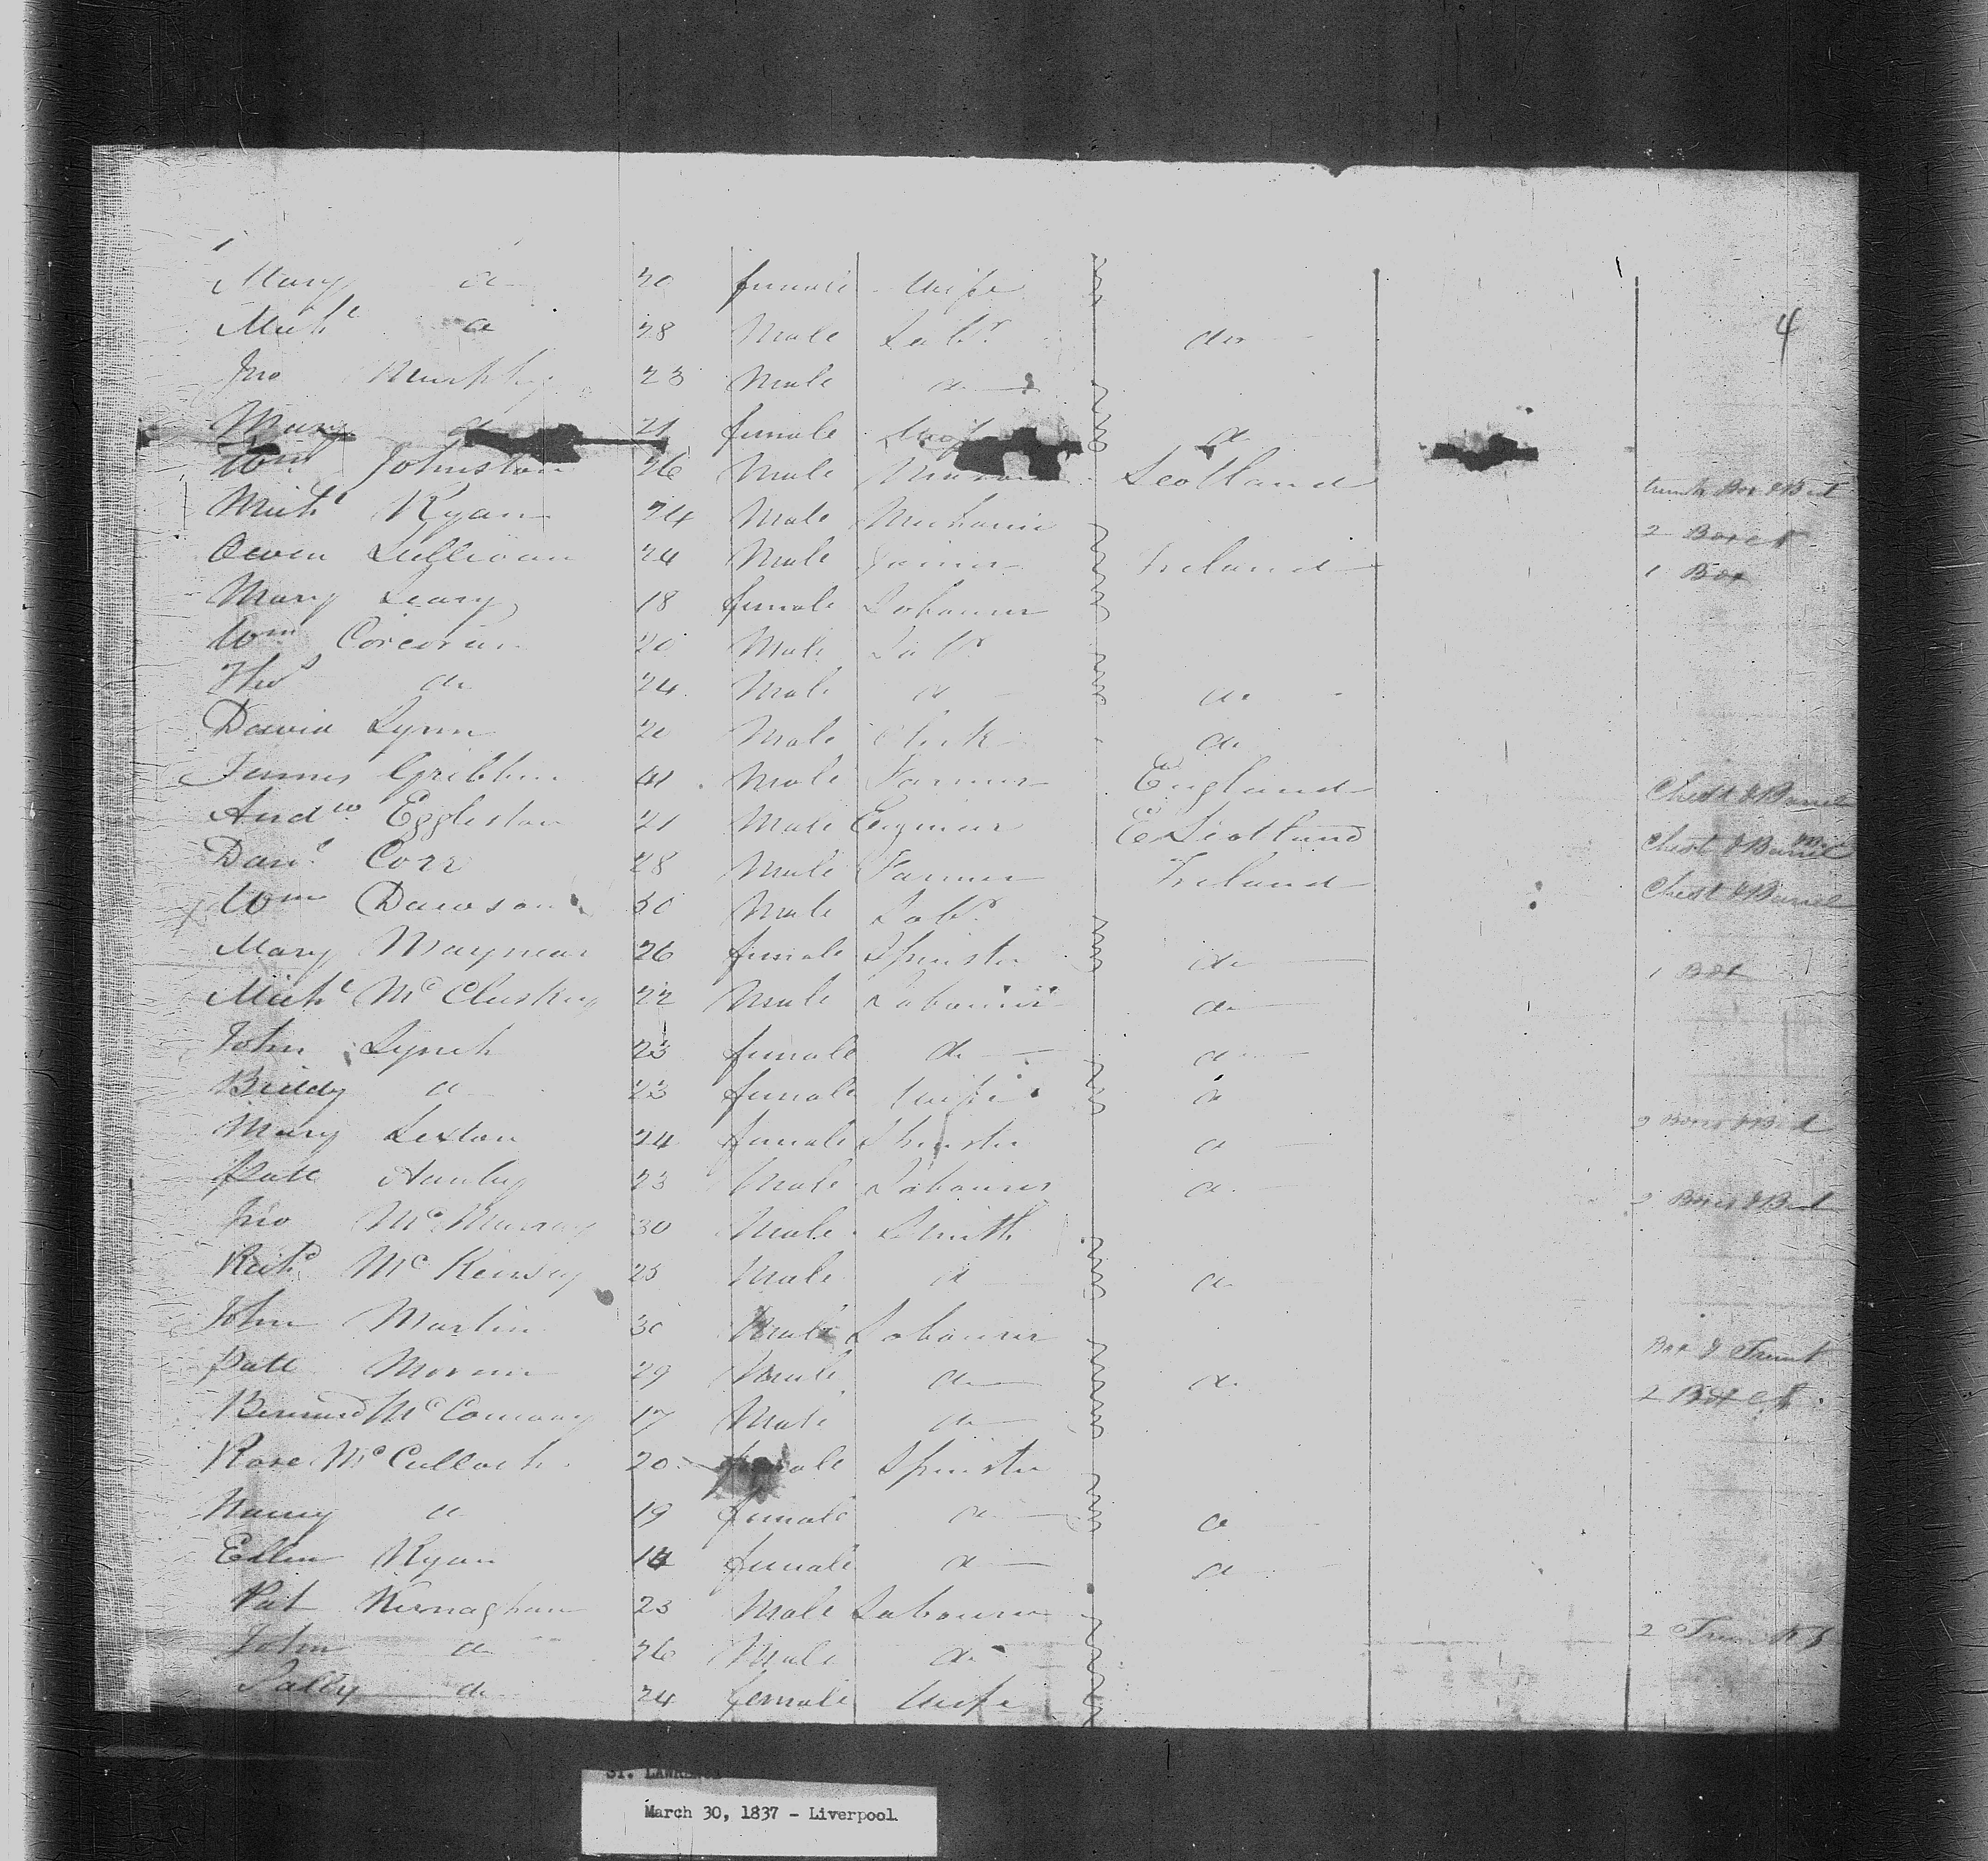 4
Mary do 30 female Wife
Michl do 28 Male Labr do
Jno Murphy 23 Male do
Mary do 21 female Wife do
Wm Johnston 26 Male Mason Scotland trunk Box & Bed
Michl Ryan 24 Male Mechanic 2 Boxes
Owen Sullivan 24 Male Ireland 1 Box
Mary Leary 18 female Labourer
Wm Corcoran 20 Male Labr
Thos do 24 Male do do
David Lynn 20 Male Clerk do
James Gribben 41 Male Farmer England Chest & Barrel
Andw Eggleston 21 Male Engineer Scotland Chest & Barrel
Danl Corr 28 Male Farmer Ireland Chest & Barrel
Wm Dawson 30 Male Labr
Mary 26 female Spinster do 1 Box
Michl McCluskey 22 Male Labourer do
John Lynch 23 female do do
Briddy do 23 female Wife do
Mary Sexton 24 female Spinster do 2 Boxes & Bed
Patt Hanley 23 Male Labourer do
Jno McMurray 30 Male Smith 2 Boxes & Bed
Richd McKensey 23 Male do do
John Martin 30 Male Labourer
Patt Moran 29 Male do do Box & Trunk
Bernard McConway 17 Male do 2 Boxes
Rose McCulloch 20 female Spinster
Nancy do 19 female do do
Ellen Ryan female do do
Pat Kernaghan 23 Male Labourer
John do 26 Male do 2 Trunks
Sally do 24 female Wife
ST. LAWRENCE
March 30, 1837 - Liverpool